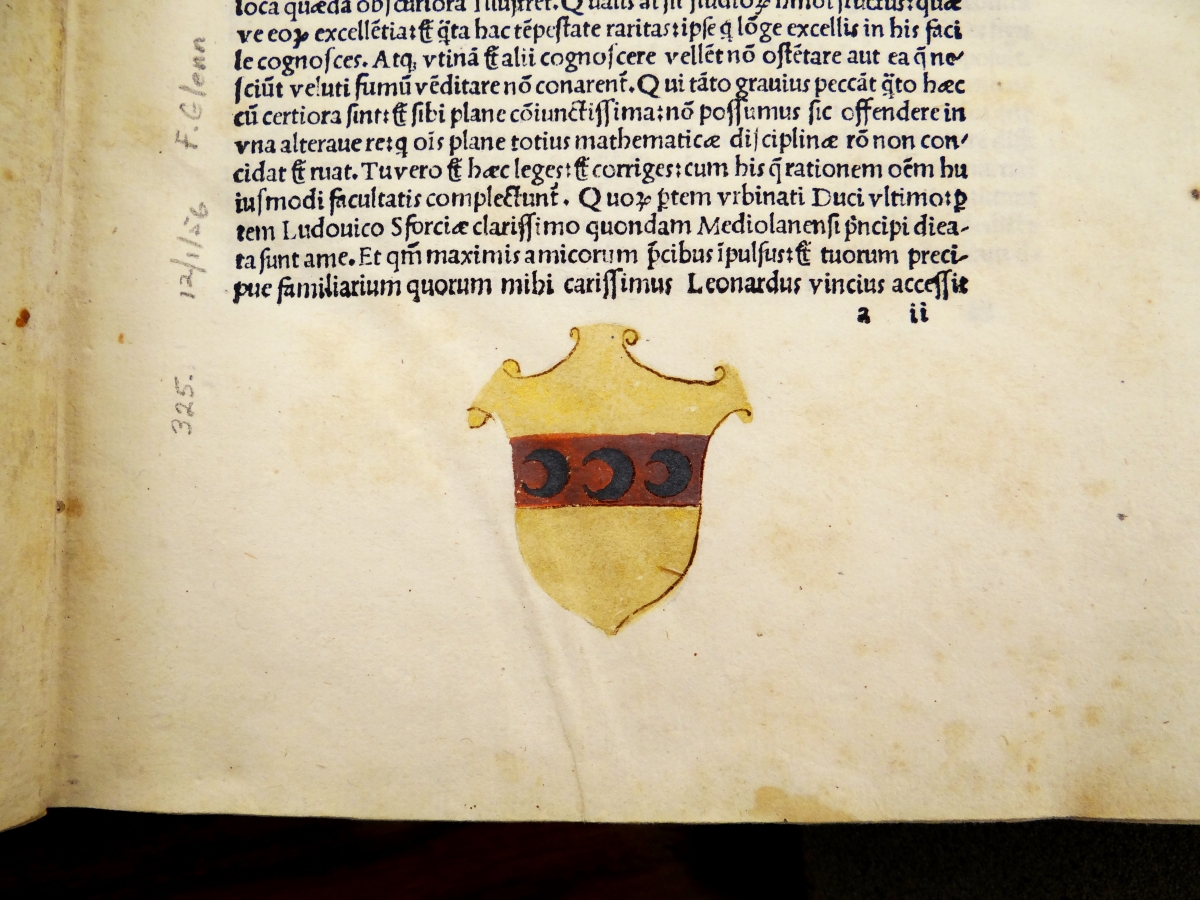 loca quæda obſcuriora Illuſtret. Qualis
ve eoꝝ excellẽtia: & q̃ta hac tẽpeſtate raritas: ipſe q̃ lõge excellis in his faci
le cognoſces. Atq; vtinã & alii cognoſcere vellẽt nõ oſtẽtare aut ea q̃ ne-
ſciũt veluti fumũ vẽditare nõ conarent̃. Qui tãto grauius peccãt q̃to hæc
cũ certiora ſint: & ſibi plane cõiunctiſſima: nõ poſſumus ſic offendere in
vna alteraue re: q oĩs plane totius mathematicæ diſciplinæ rõ non con-
cidat & ruat. Tu vero & hæc leges: & corriges: cum his q̃ rationem oẽm hu
iuſmodi facultatis complectunt̃. Quoꝝ p̃tem vrbinati Duci vltimo: ꝑ
tem Ludouico Sforciæ clariſſimo quondam Mediolanenſi p̃ncipi diea-
ta ſunt a me. Et qm̃ maximis amicorum p̃cibus ĩpulſus: & tuorum preci-
pue familiarium quorum mihi cariſſimus Leonardus vincius acceſſit
a ii
F. Glenn
12/1/26
325.